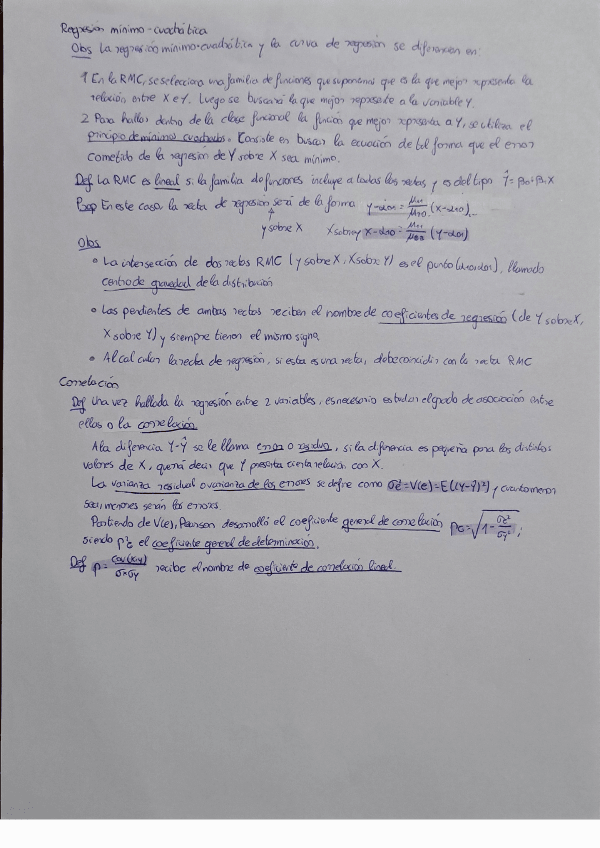 Regresión mínimo-cuadrática
Obs La regresión mínimo-cuadrática y la curva de regresión se diferencian en:
1 En la RMC, se selecciona una familia de funciones que suponemos que es la que mejor representa la
relación entre X e Y. Luego se buscará la que mejor represente a la variable Y.
2 Para hallar dentro de la clase funcional la función que mejor representa a Y, se utiliza el
principio de mínimos cuadrados. Consiste en buscar la ecuación de tal forma que el error
cometido de la regresión de Y sobre X sea mínimo.
Def La RMC es lineal si la familia de funciones incluye a todas las rectas y es del tipo Ŷ = β₀ + β₁X
Prop En este caso, la recta de regresión será de la forma y-α₀₁ = μ₁₁/μ₂₀ (x-α₁₀)
y sobre X X sobre y x-α₁₀ = μ₁₁/μ₀₂ (y-α₀₁)
Obs
• La intersección de dos rectas RMC (y sobre X, X sobre Y) es el punto (α₁₀, α₀₁), llamado
centro de gravedad de la distribución
• Las pendientes de ambas rectas reciben el nombre de coeficientes de regresión (de Y sobre X,
X sobre Y) y siempre tienen el mismo signo.
• Al calcular la recta de regresión, si esta es una recta, debe coincidir con la recta RMC
Correlación
Def Una vez hallada la regresión entre 2 variables, es necesario estudiar el grado de asociación entre
ellas o la correlación
A la diferencia Y-Ŷ se le llama error o residuo, si la diferencia es pequeña para los distintos
valores de X, querrá decir que Y presenta cierta relación con X.
La varianza residual o varianza de los errores se define como σe² = V(e) = E((Y-Ŷ)²) y cuanto menor
sea, menores serán los errores.
Partiendo de V(e), Pearson desarrolló el coeficiente general de correlación ρc = √(1 - σe²/σy²);
siendo ρ²c el coeficiente general de determinación.
Def ρ = Cov(x,y)/σxσy recibe el nombre de coeficiente de correlación lineal.